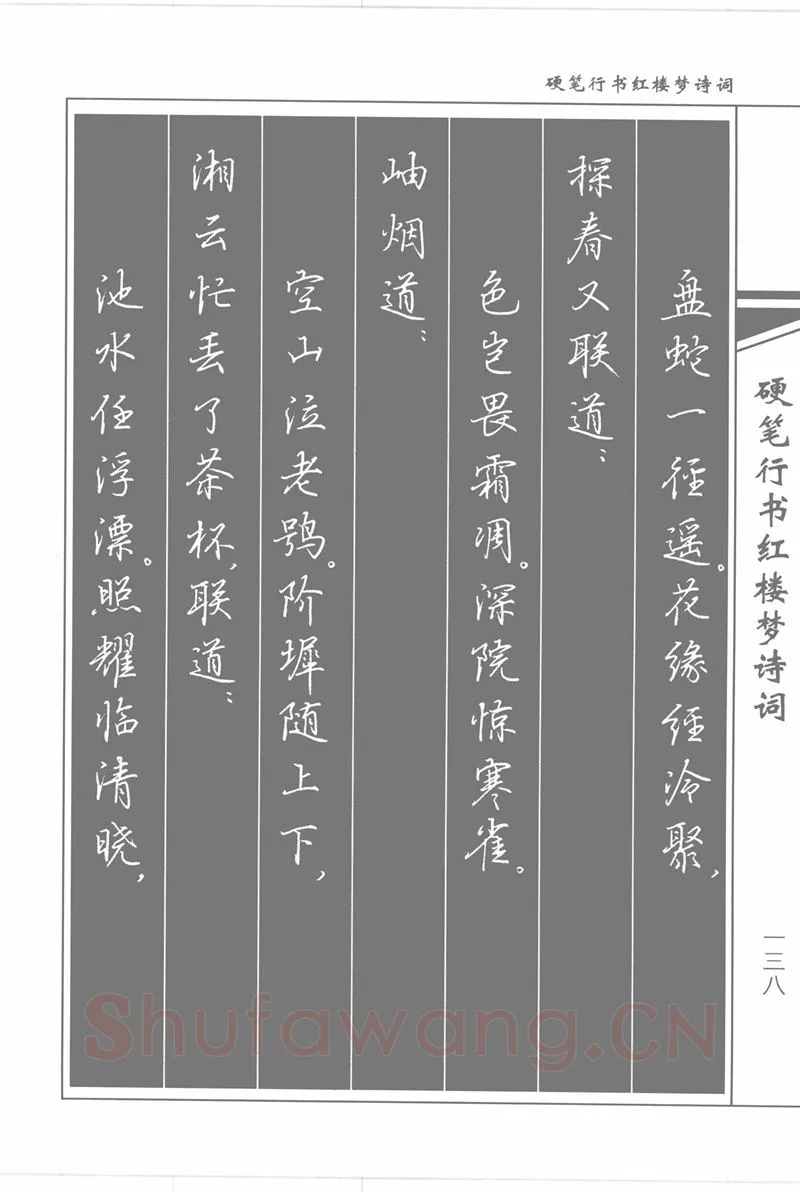 硬笔行书红楼梦诗词
盘蛇一径遥。花缘经冷聚，
探春又联道：
色岂畏霜凋。深院惊寒雀。
岫烟道：
空山泣老鸮。阶墀随上下，
湘云忙丢了茶杯，联道：
池水任浮漂。照耀临清晓，
硬笔行书红楼梦诗词
一三八
Shufawang.CN